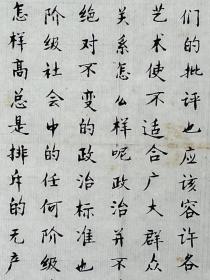 们的批评也应该容许各
艺术使不适合广大群众
关系怎么样呢政治并不
绝对不变的政治标准也
阶级社会中的任何阶级
怎样高总是排斥的无产